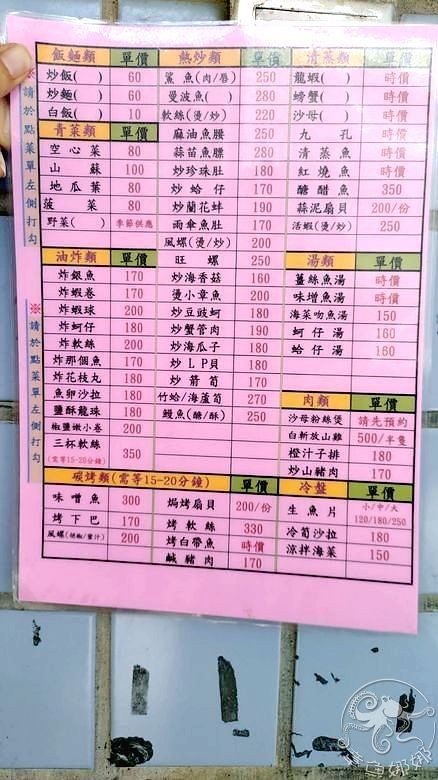 ※請於點菜單左側打勾
※請於點菜單左側打勾
飯麵類 單價
炒飯( ) 60
炒麵( ) 60
白飯( ) 10
青菜類 單價
空心菜 80
山蘇 100
地瓜葉 80
菠菜 80
野菜( ) 季節供應
油炸類 單價
炸銀魚 170
炸蝦卷 170
炸蝦球 200
炸蚵仔 180
炸軟絲 200
炸那個魚 170
炸花枝丸 180
魚卵沙拉 180
鹽酥龍珠 180
椒鹽嫩小卷 200
三杯軟絲 350
(需等15-20分鐘)
熱炒類 單價
鯊魚(肉/唇) 250
曼波魚( ) 280
軟絲(燙/炒) 220
麻油魚腰 250
蒜苗魚膘 280
炒珍珠肚 180
炒蛤仔 170
炒蘭花蚌 190
雨傘魚肚 170
風螺(燙/炒) 200
旺螺 250
炒海香菇 160
燙小章魚 200
炒豆豉蚵 180
炒蟹管肉 190
炒海瓜子 180
炒LP貝 180
炒箭筍 170
竹蛤/海蘆筍 270
鰻魚(醋/酥) 250
清蒸類 單價
龍蝦( ) 時價
螃蟹( ) 時價
沙母( ) 時價
九孔 時價
清蒸魚 時價
紅燒魚 時價
醣醋魚 350
蒜泥扇貝 200/份
活蝦(燙/炒) 250
湯類 單價
薑絲魚湯 時價
味增魚湯 時價
海菜吻魚湯 150
蚵仔湯 160
蛤仔湯 160
肉類 單價
沙母粉絲煲 請先預約
白斬放山雞 500/半隻
橙汁子排 180
炒山豬肉 170
碳烤類(需等15-20分鐘) 單價
味噌魚 300
烤下巴 170
風螺(胡椒/蜜汁) 200
焗烤扇貝 200/份
烤軟絲 330
烤白帶魚 時價
鹹豬肉 170
冷盤 單價
生魚片 小/中/大 120/180/250
冷筍沙拉 180
涼拌海菜 150